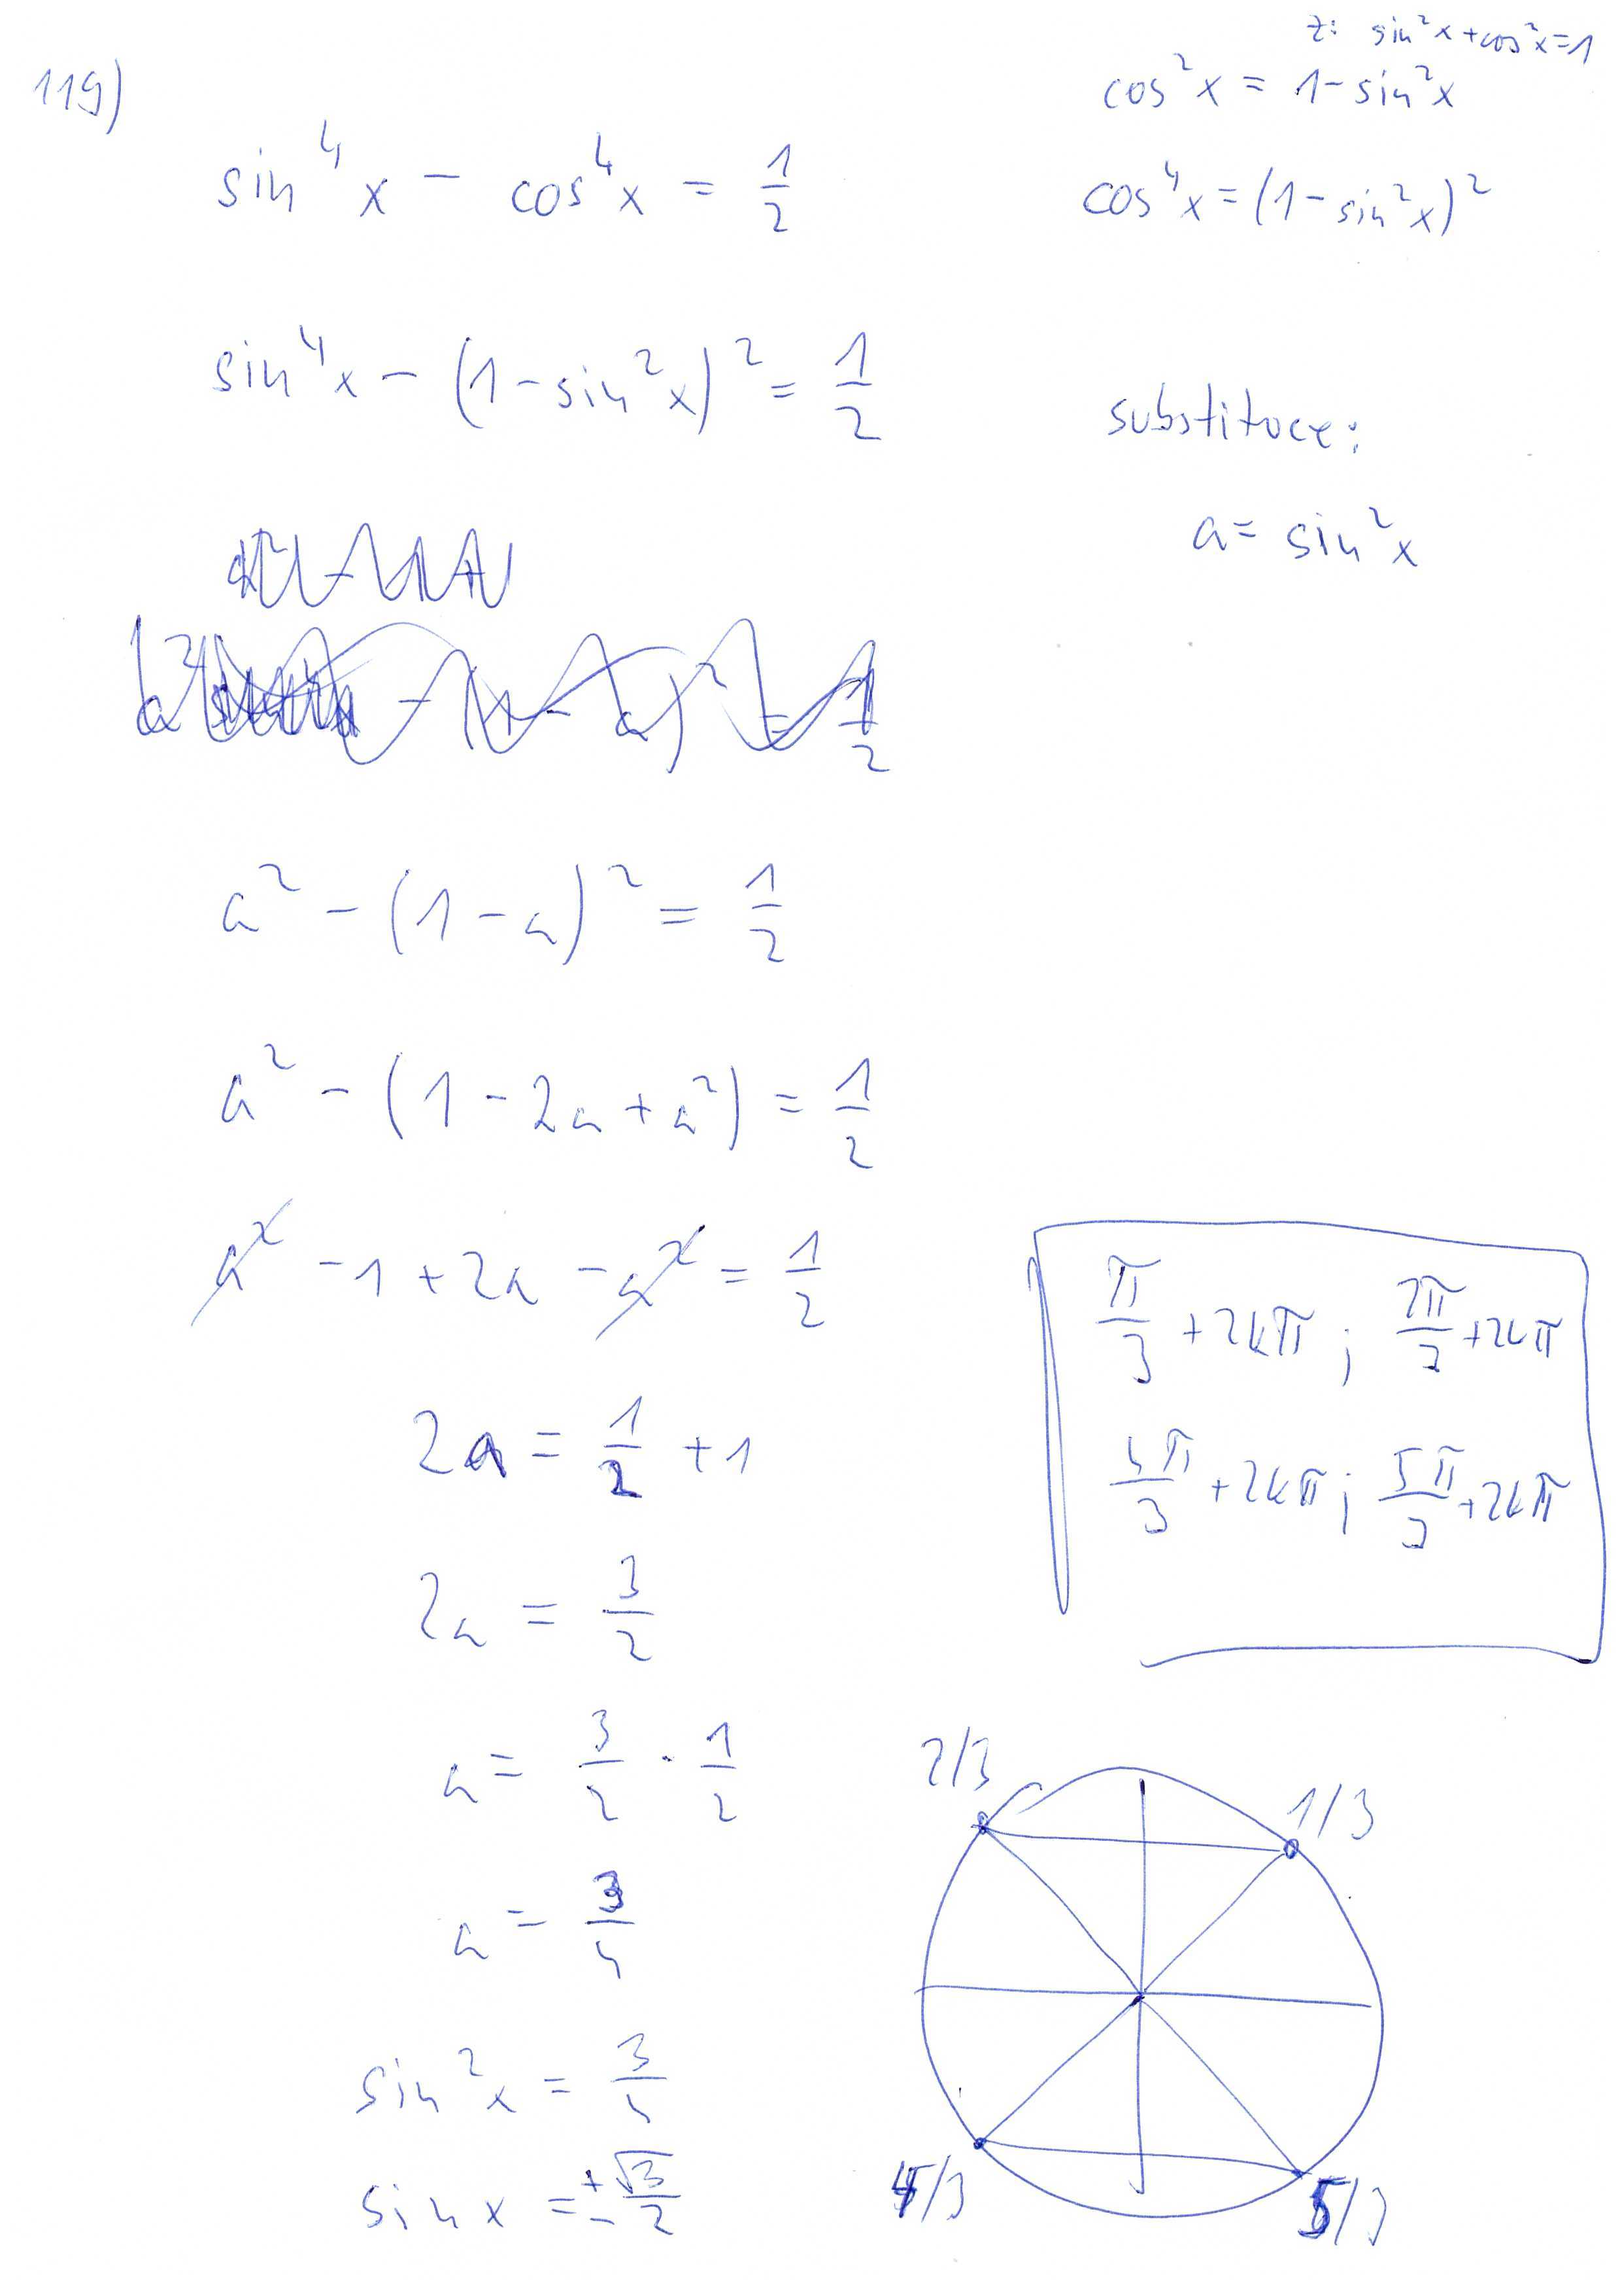 z: sin²x+cos²x=1
119)
cos²x = 1-sin²x
sin⁴x - cos⁴x = 1/2
cos⁴x=(1-sin²x)²
sin⁴x - (1-sin²x)² = 1/2
substituce:
a= sin²x
a² - (1-a)² = 1/2
a² - (1-2a+a²) = 1/2
a² -1 +2a -a² = 1/2
2a = 1/2 +1
2a = 3/2
a = 3/2 · 1/2
a = 3/4
sin²x = 3/4
sin x = ±√3/2
π/3 +2kπ ; 2π/3 +2kπ
4π/3 +2kπ ; 5π/3 +2kπ
2/3
1/3
4/3
5/3